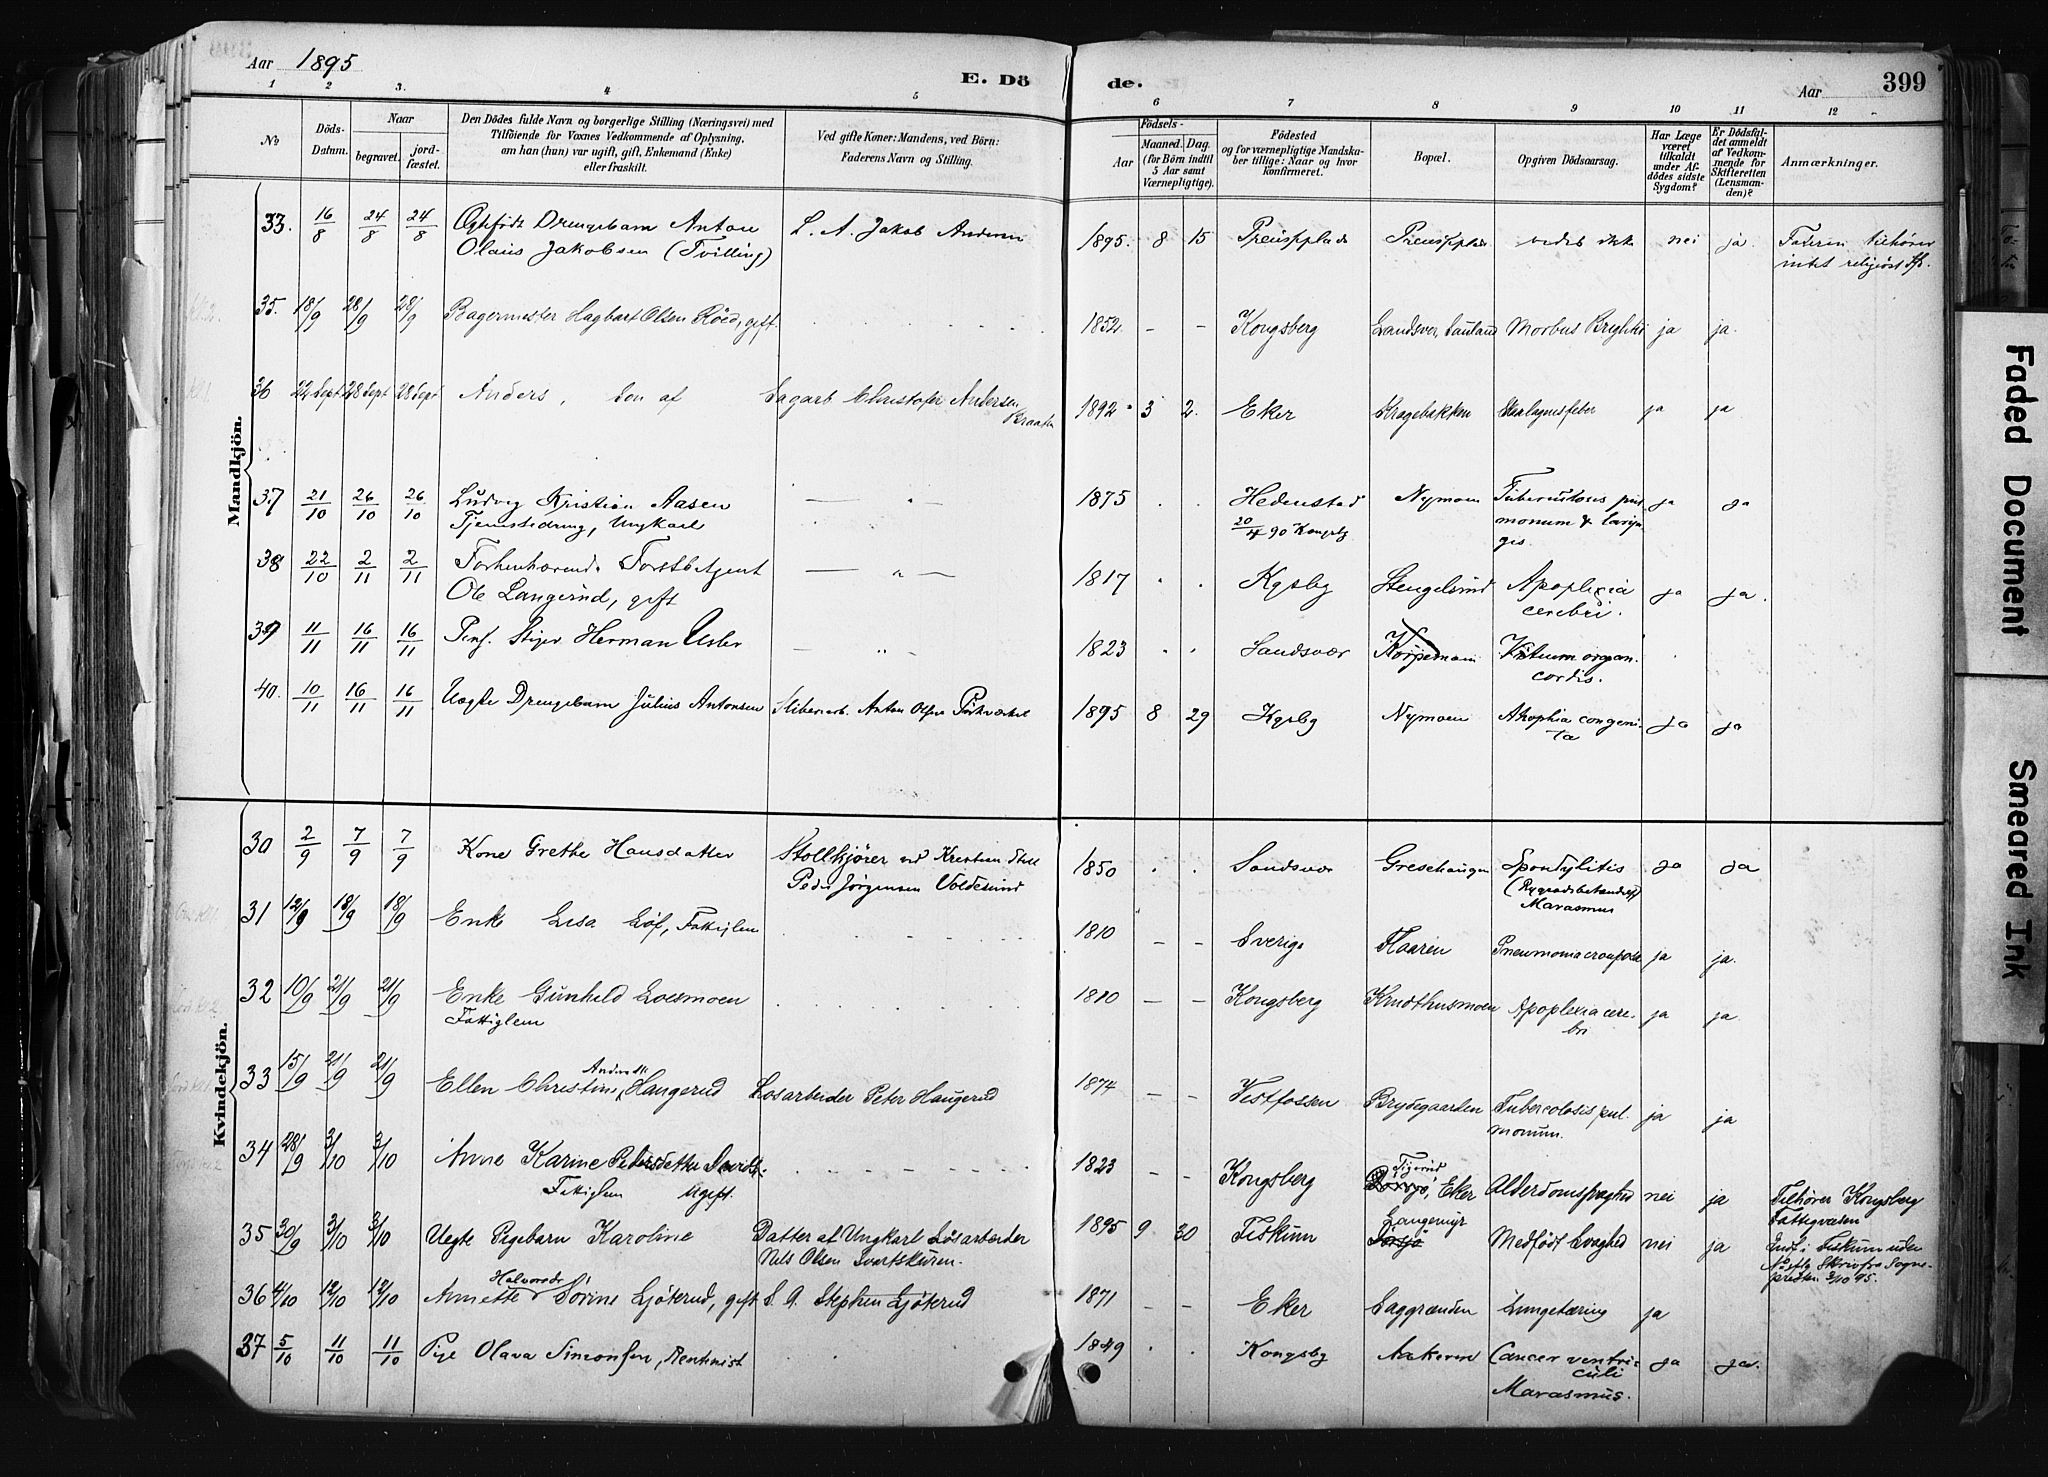 Aar 1895
E. Dö
de.
Aar
399
1 2 3. 4 5 6 7 8 9 10 11 12
No
Döds-
Datum.
Naar
begravet.
jord-
fæstet.
Den Dödes fulde Navn og borgerlige Stilling (Næringsvei) med
Tilföiende for Voxnes Vedkommende af Oplysning,
om han (hun) var ugift, gift, Enkemand (Enke)
eller fraskilt.
Ved gifte Koner: Mandens, ved Börn:
Faderens Navn og Stilling.
Födsels-
Aar
Maaned. Dag.
(for Börn indtil
5 Aar samt
Værnepligtige).
Födested
og for værnepligtige Mandska-
ber tillige: Naar og hvor
konfirmeret.
Bopæl.
Opgiven Dödsaarsag.
Har Læge
været
tilkaldt
under Af-
dödes sidste
Sygdom?
Er Dödsfal-
det anmeldt
af Vedkom-
mende for
Skifteretten
(Lensman-
den)?
Anmærkninger.
Mandkjön.
33. 16/8 24/8 24/8 Ægtefödt Drengebarn Anton L. A. Jakob Andersen 1895. 8 15 vides ikke nei ja. Faderen tilhörer
Olaus Jakobsen (Tvilling) intet religiöst Sfd.
35. 18/9 28/9 28/9 Bagermester Hagbart Olsen Röed, gift. 1852. - - Kongsberg Morbus Brightii ja ja.
36 22 Sept 28 Sept 28 Sept Anders, Sön af Sagarb Christofer Andersen 1892 3 2. Eker Kragebakken Skarlagensfeber ja ja
Kraaten
37 21/10 26/10 26/10 Ludvig Kristian Aasen 1875 Hedenstad Nymoen Tuberculosis pul
Tjenestedreng, Ungkarl 20/4 90 Kongsbg monum & laryn
gis. ja ja
38 22/10 2/11 2/11 Forhenværende Forstbetjent 1817 Kgsbg Stengelsrud Apoplexia
Ole Langerud, gift cerebri. ja ja.
39 11/11 16/11 16/11 Pens. Stiger Herman Usler 1823 Sandsvær Korpemoen Vitium organ.
cordis.
40. 10/11 16/11 16/11 Uægte Drengebarn Julius Antonsen Sliberiarb. Anton Olsen 1895 8 29 Kgsbg Nymoen Atrophia congeni-
ta ja ja
Kvindekjön.
30 2/9 7/9 7/9 Kone Grethe Hansdatter Stollkjörer ved Kristian Stoll 1850 Sandsvær Gresehaugen Spondylitis ja ja
Peder Jörgensen Voldesrud (Rygradsbetændelse)
Marasmus
31 12/9 18/9 18/9 Enke Lisa Löf, Fattiglem 1810 - - Sverige Flaaren Pneumonia crouposa ja ja.
32 10/9 21/9 21/9 Enke Gunhild Loesmoen 1810 - - Kongsberg Knuthusmoen Apoplexia cere-
Fattiglem bri ja ja
33 15/9 21/9 21/9 Ellen Christine Andrsdtr. Haugerud Losarbeider Peter Haugerud 1874 - - Vestfossen Brydegaarden Tubercolosis pul
monum. ja ja
34 28/9 3/10 3/10 Anne Karine Pedersdatter 1823 - - Kongsberg Eker Alderdomssvaghed nei ja Tilhörer Kongsberg
Fattiglem Ugift. Fattigvæsen
35 30/9 3/10 3/10 Uegte Pigebarn Karoline Datter af Ungkarl Lösarbeider 1895 9 30 Fiskum Langemyr Medfödt Svaghed nei ja Indf. i Fiskum under
Nils Olsen Svartskuren. No efter Skriv fra Sogne-
presten 3/10 95.
36 4/10 12/10 12/10 Annette Halvorsdr. Sörine Ljöterud, gift S. A. Stephen Ljöterud 1871 - - Eker Saggrænden Lungetæring ja
37 5/10 11/10 11/10 Pige Olava Simonsen, Rentenist 1849 Kongsbg Aakeren Cancer ventri-
culi
Marasmus. ja ja.
Faded Document
Smeared Ink